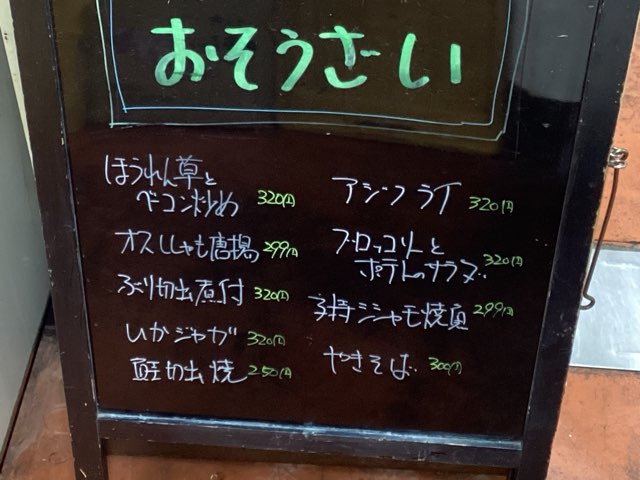 おそうざい
ほうれん草と
ベーコン炒め 320円
オスししゃも唐揚 299円
ぶり切出煮付 320円
いかジャガ 320円
鮭切出焼 250円
アジフライ 320円
ブロッコリーと
ポテトのサラダ 320円
子持シシャモ焼 299円
やきそば 300円